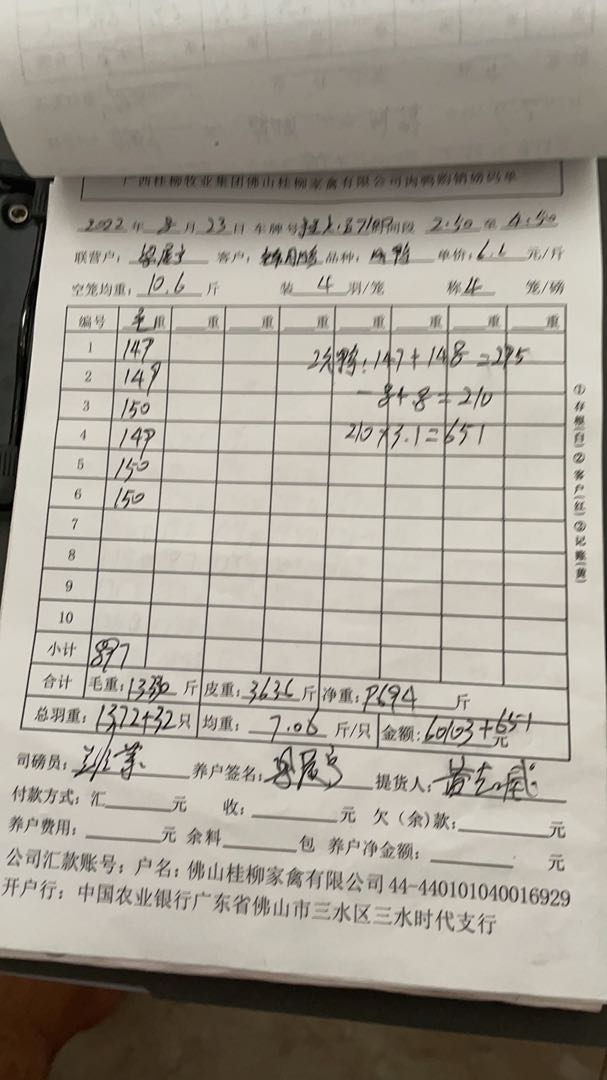 广西桂柳牧业集团佛山桂柳家禽有限公司肉鸭购销磅码单
2022 年 8 月 23 日 车牌号 间段 2:50 至 4:50
联营户: 客户: 品种: 肉鸭 单价: 6.2 元/斤
空笼均重: 10.6 斤 装 4 羽/笼 称 4 笼/磅
编号 毛重 重 重 重 重 重 重 重
1 147 次鸭: 147+148=295
2 149 =210
3 150 210×3.1=651
4 149
5 150
6 150
7
8
9
10
小计 897
合计 毛重: 13330 斤 皮重: 3636 斤 净重: 9694 斤
总羽重: 1372+32 只 均重: 7.06 斤/只 金额: 60103+651 元
司磅员: 养户签名: 提货人:
付款方式: 汇 元 收: 元 欠(余)款: 元
养户费用: 元 余料 包 养户净金额: 元
公司汇款账号; 户名: 佛山桂柳家禽有限公司 44-440101040016929
开户行: 中国农业银行广东省佛山市三水区三水时代支行
①存根(白)②客户(红)③记账(黄)